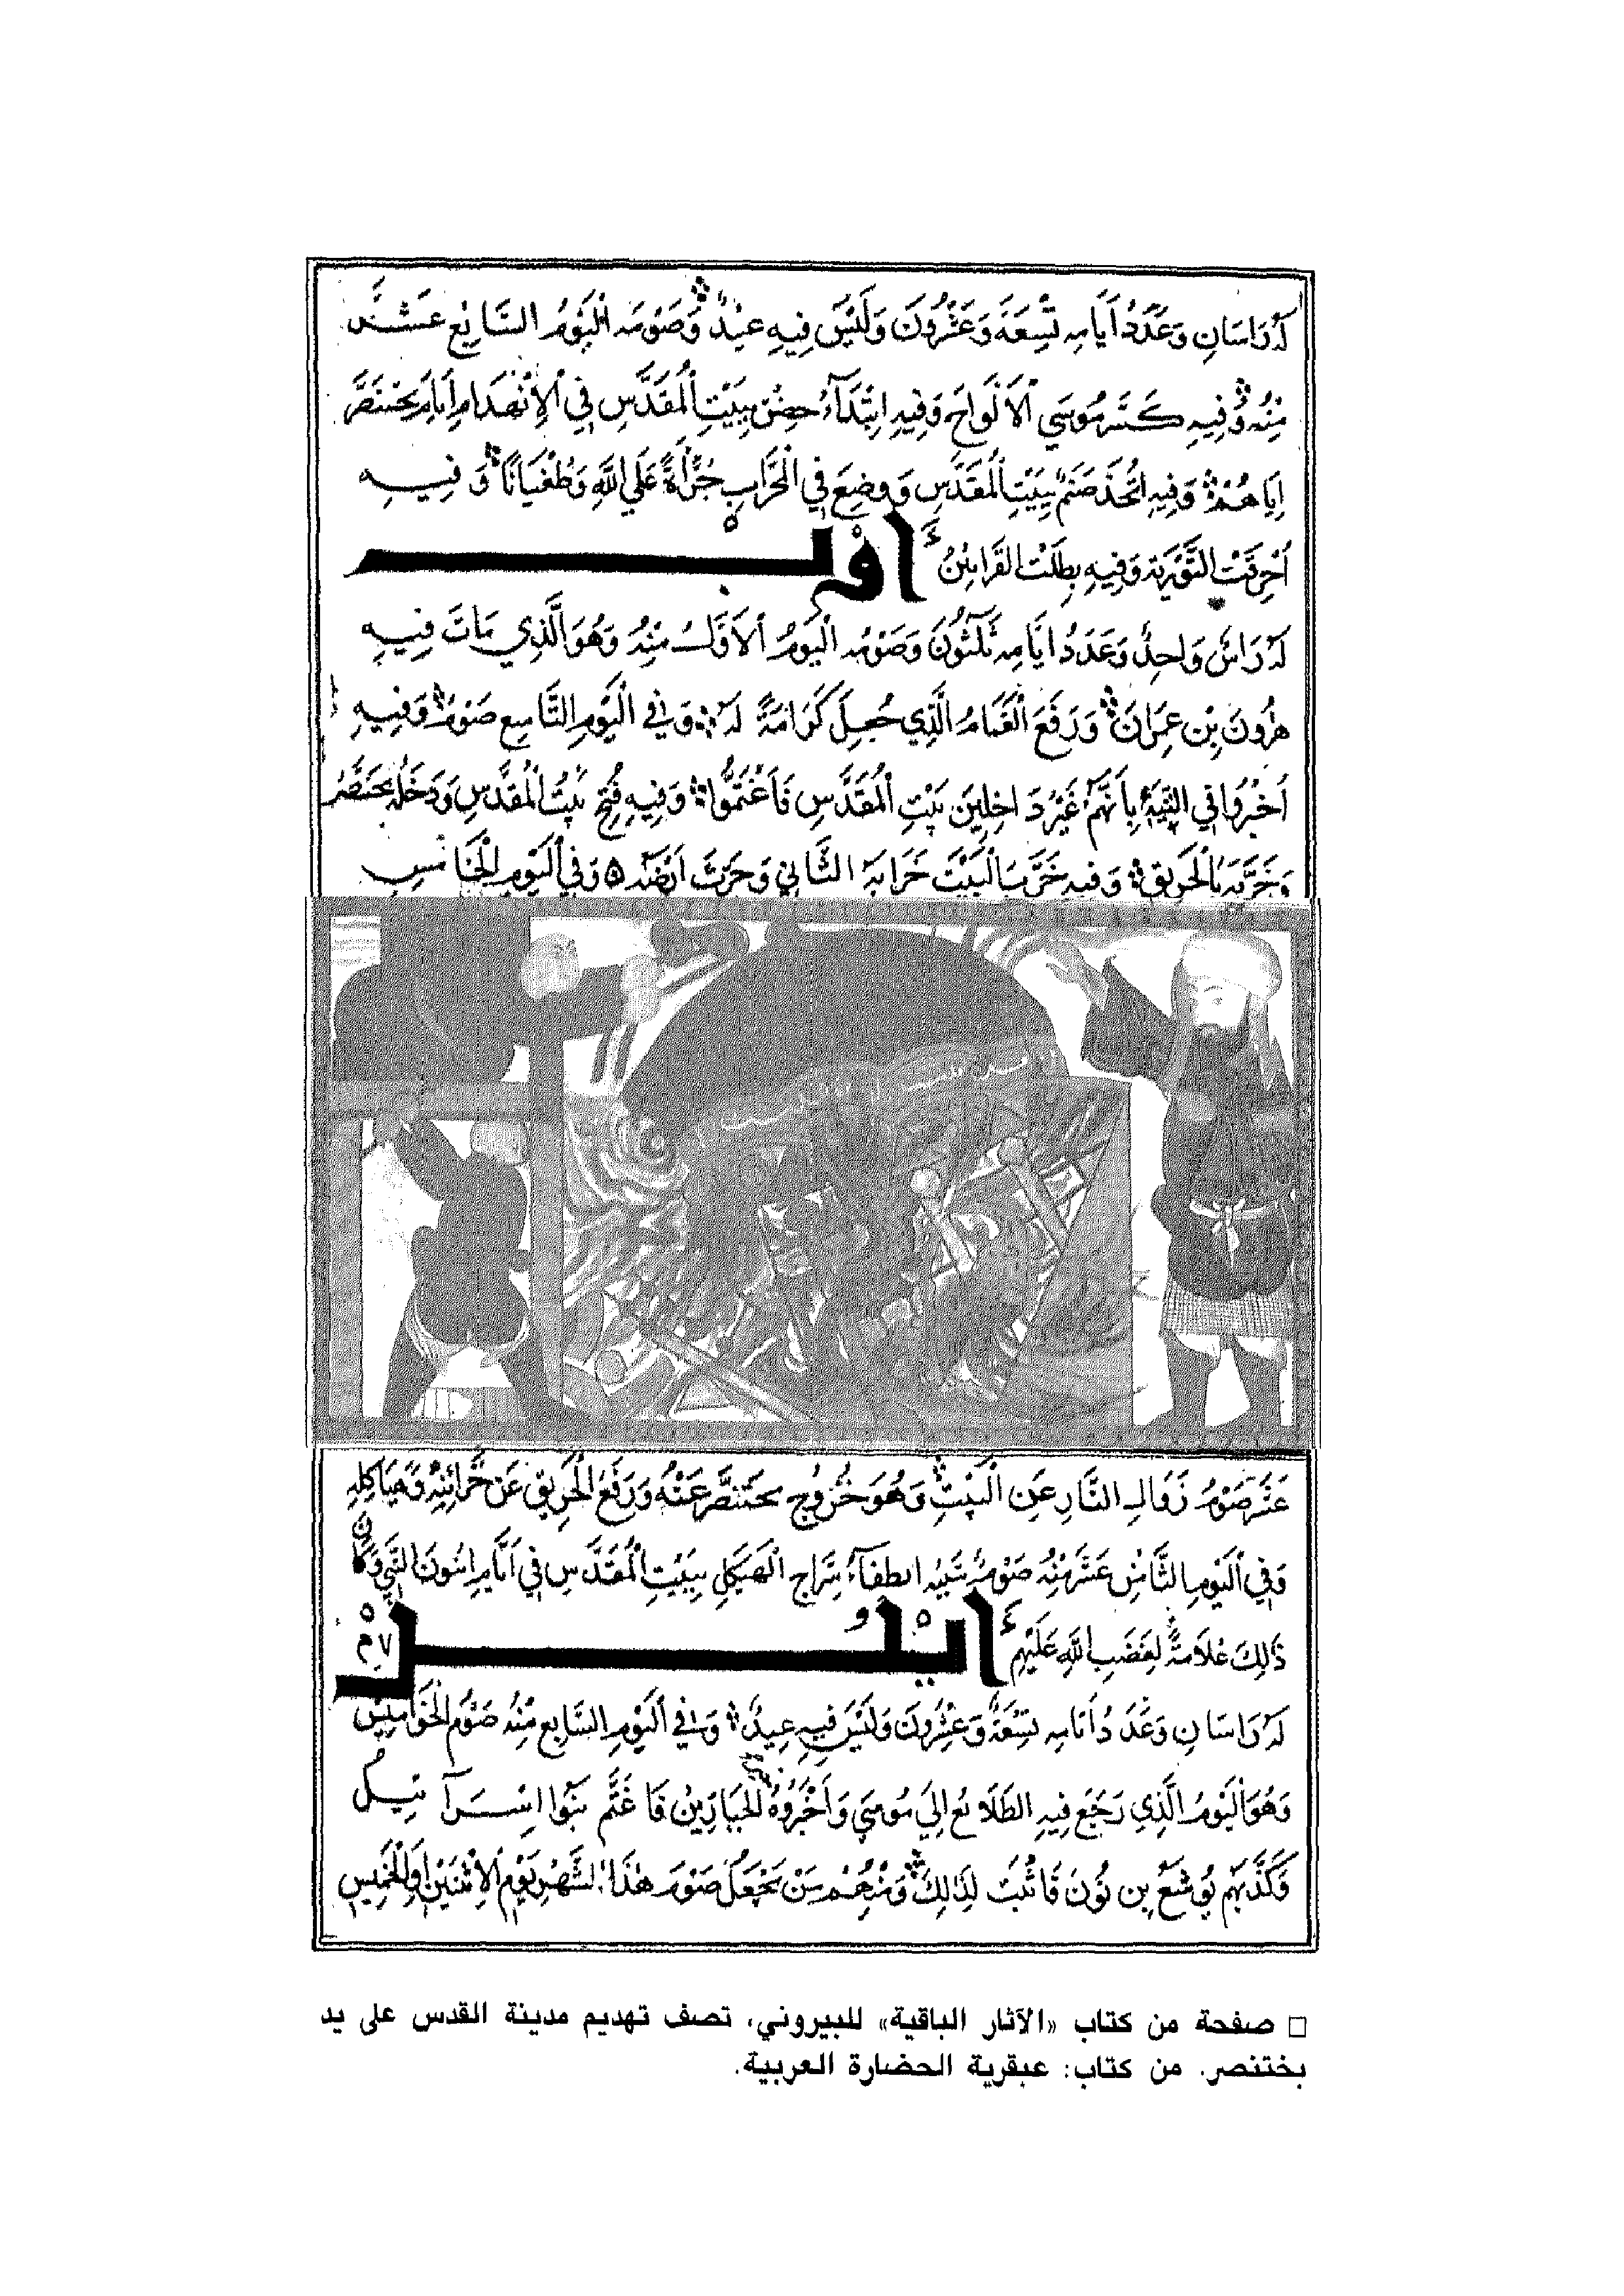 لَهُ رَاسَانِ وَعَدَدُ أَيَّامِهِ تِسْعَةٌ وَعِشْرُونَ وَلَيْسَ فِيهِ عِيدٌ وَصَوْمُهُ الْيَوْمُ السَّابِعُ عَشَرَ
مِنْهُ وَفِيهِ كَسَّرَ مُوسَي الْأَلْوَاحَ وَفِيهِ ابْتِدَآءُ حِصْنِ بَيْتِ الْمُقَدَّسِ فِي الْاِنْهِدَامِ أَيَّامَ بُخْتَنَصَّرَ
إِيَّاهُمْ وَفِيهِ اتُّخِذَ صَنَمٌ بِبَيْتِ الْمُقَدَّسِ وَوُضِعَ فِي الْمِحْرَابِ جُرْأَةً عَلَي اللَّهِ وَطُغْيَانًا وَفِيهِ
أُحْرِقَتِ التَّوْرِيَةُ وَفِيهِ بَطَلَتِ الْقَرَابِينُ أَوْب
لَهُ رَاسٌ وَاحِدٌ وَعَدَدُ أَيَّامِهِ ثَلَثُونَ وَصَوْمُهُ الْيَوْمُ الْأَوَّلُ مِنْهُ وَهُوَ الَّذِي مَاتَ فِيهِ
هٰرُونَ بِنْ عِمْرَانَ وَرُفِعَ الْغَمَامُ الَّذِي جُعِلَ كَرَامَةً لَهُ وَفِي الْيَوْمِ التَّاسِعِ صَوْمٌ وَفِيهِ
أُخْبِرُوا فِي التِّيهِ بِأَنَّهُمْ غَيْرُ دَاخِلِينَ بَيْتِ الْمُقَدَّسِ فَاغْتَمُّوا وَفِيهِ فُتِحَ بَيْتُ الْمُقَدَّسِ وَدَخَلَهُ بُخْتَنَصَّرُ
وَخَرَّبَهُ بِالْحَرِيقِ وَفِيهِ خَرِبَ الْبَيْتُ خَرَابَهُ الثَّانِي وَحُرِثَ أَرْضُهُ وَفِي الْيَوْمِ الْخَامِسِ
عَشَرَ صَوْمُ زَوَالِ النَّارِ عَنِ الْبَيْتِ وَهُوَ خُرُوجُ بُخْتَنَصَّرَ عَنْهُ وَرَفْعُ الْحَرِيقِ عَنْ خَزَائِنِهِ وَهَيَاكِلِهِ
وَفِي الْيَوْمِ الثَّامِنِ عَشَرَ مِنْهُ صَوْمٌ انْطِفَآءُ سِرَاجِ الْهَيْكَلِ بِبَيْتِ الْمُقَدَّسِ فِي أَيَّامِ النَّبِي وَكَانَ
ذَالِكَ عَلَامَةً لِغَضَبِ اللَّهِ عَلَيْهِمْ أَيْلُول
لَهُ رَاسَانِ وَعَدَدُ أَيَّامِهِ تِسْعَةٌ وَعِشْرُونَ وَلَيْسَ فِيهِ عِيدٌ وَفِي الْيَوْمِ السَّابِعِ مِنْهُ صَوْمُ
وَهُوَ الْيَوْمُ الَّذِي رَجَعَ فِيهِ الطَّلَائِعُ إِلَي مُوسَي وَأَخْبَرُوهُ الْجَبَّارِينَ فَاغْتَمَّ بَنُوا إِسْرَآئِيلَ
وَكَذَّبَهُمْ يُوشَعُ بِن نُونَ لِذَالِكَ وَمِنْهُمْ مَنْ يَجْعَلُ صَوْمَ هٰذَا الشَّهْرِ يَوْمَ الْاِثْنَيْنِ أَوِ الْخَمِيسِ
□ صفحة من كتاب «الآثار الباقية» للبيروني، تصف تهديم مدينة القدس على يد
بختنصر. من كتاب: عبقرية الحضارة العربية.